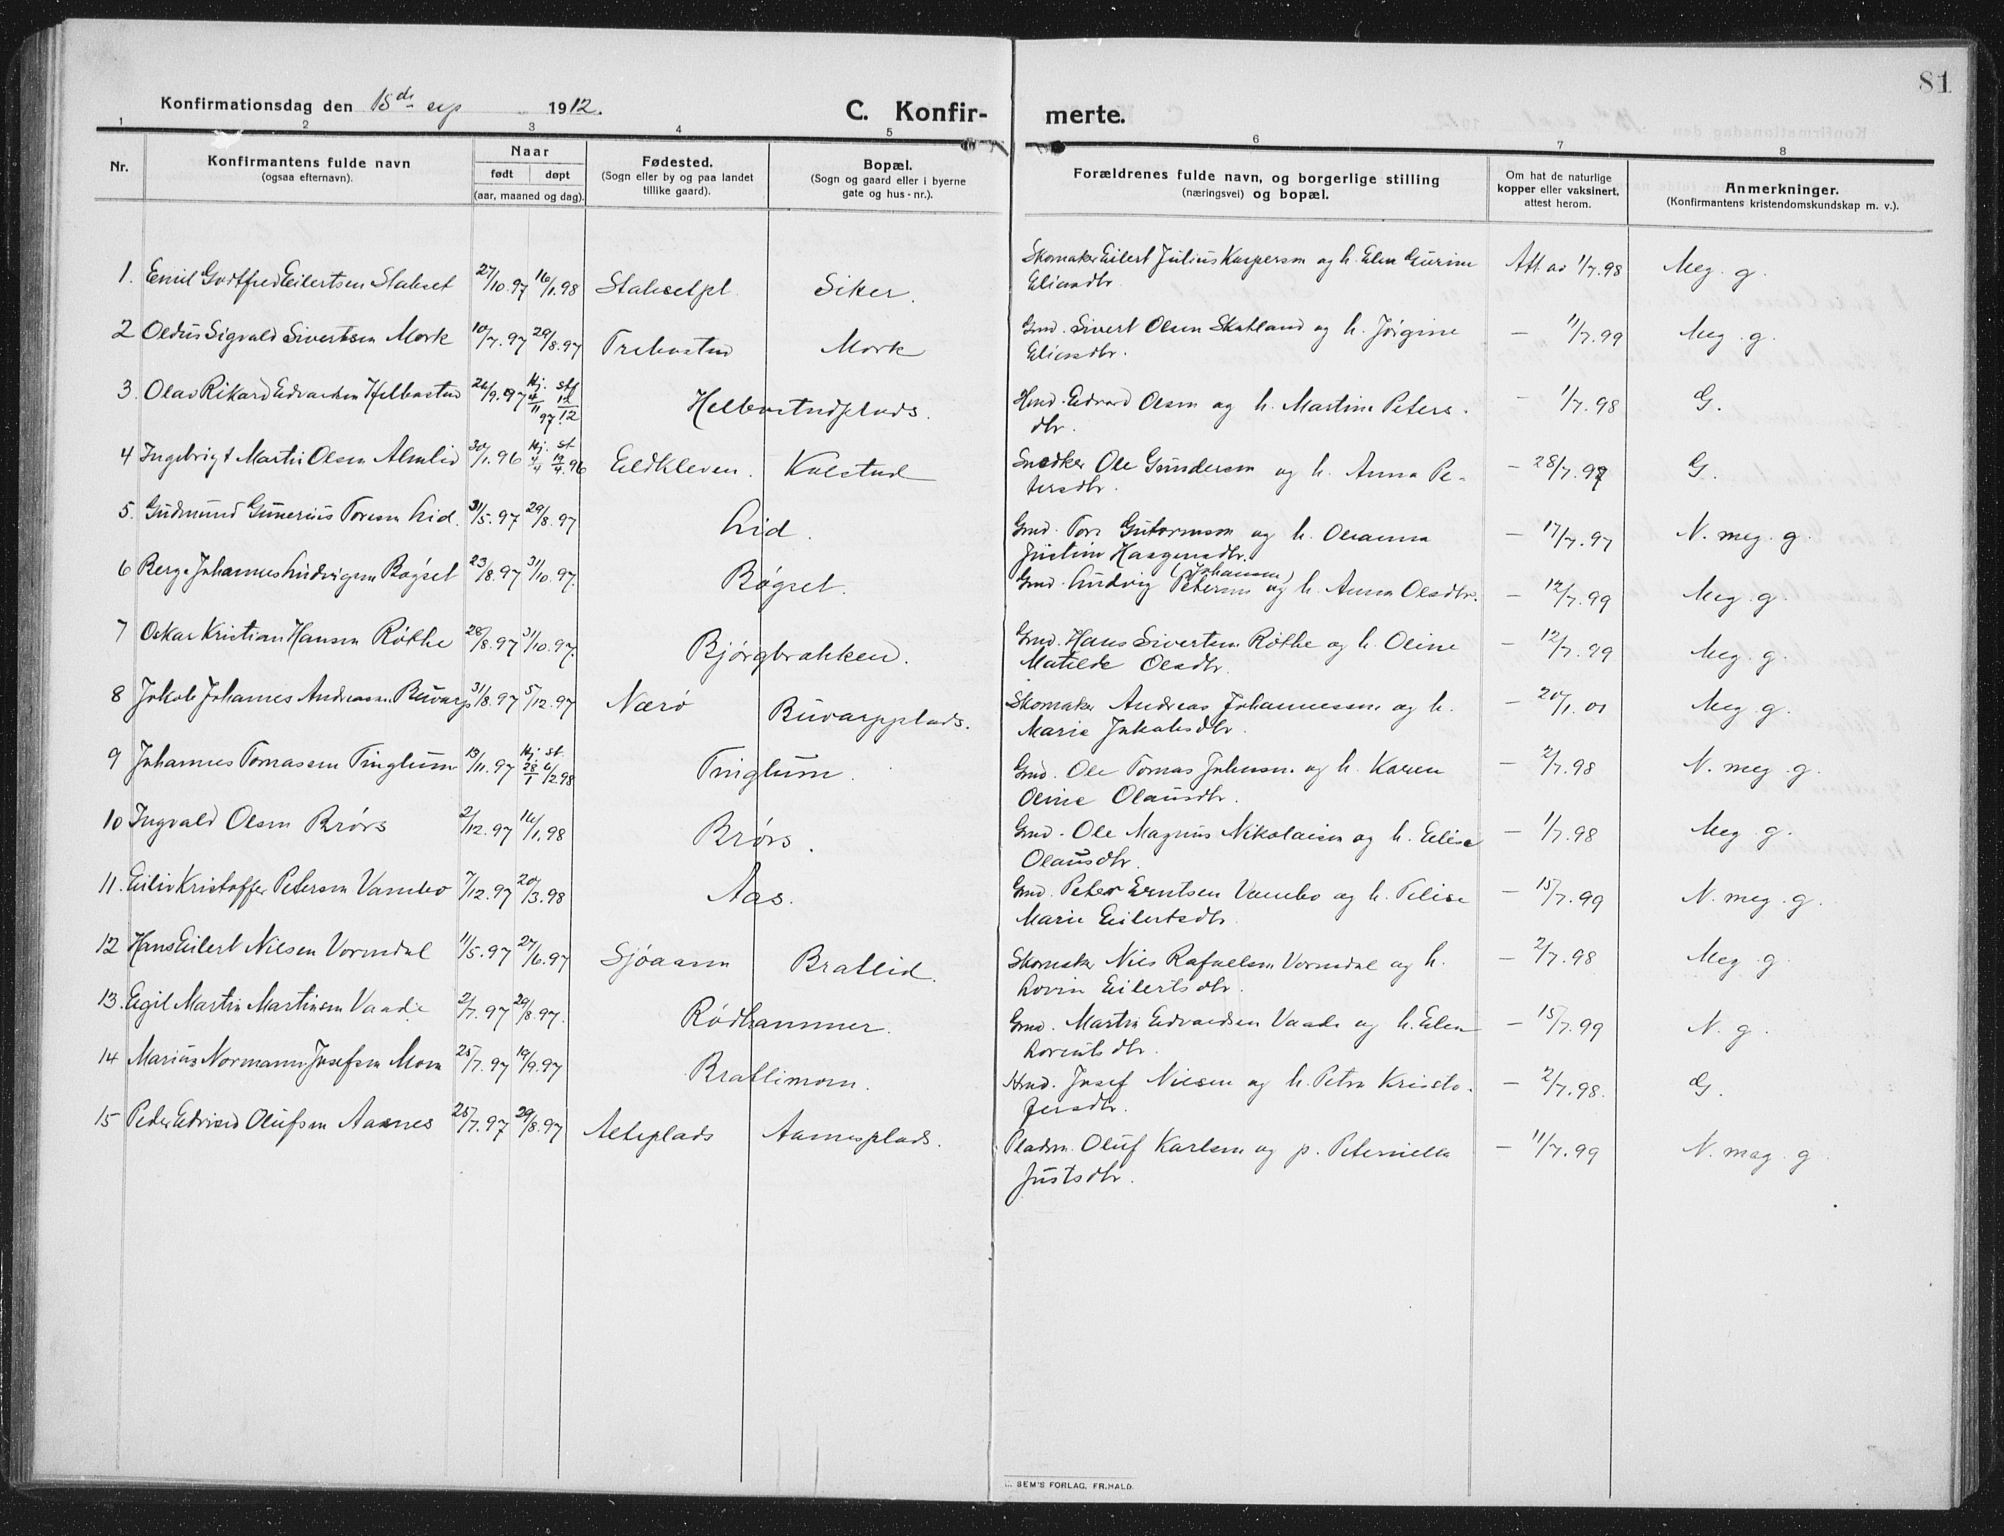 81
Konfirmationsdag den 15de sep 1912.
C. Konfir-merte.
1 2 3 4 5 6 7 8
Nr.
Konfirmantens fulde navn
(ogsaa efternavn).
Naar
født døpt
(aar, maaned og dag).
Fødested.
(Sogn eller by og paa landet
tillike gaard).
Bopæl.
(Sogn og gaard eller i byerne
gate og hus-nr.).
Forældrenes fulde navn, og borgerlige stilling
(næringsvei) og bopæl.
Om hat de naturlige
kopper eller vaksinert,
attest herom.
Anmerkninger.
(Konfirmantens kristendomskundskap m. v.).
1. Emil Godtfred Eilertsen Stakset 27/10.97 16/1.98 Staksetpl. Siker. Skomaker Eilert Julius Kaspersen og h. Elen Gurine Att. av 1/7.98 Meg. g.
Eliasdtr.
2 Oldus Sigvald Sivertsen Mork 10/7.97 29/8.97 Trebostad Mork Gmd. Sivert Olsen Skatland og h. Jørgine — 11/7.99 Meg. g.
Eliasdtr.
3. Olav Rikard Edvardsen Helbostad 26/9.97 Hj. 4/11 97 st. 12/12 Helbostadplads. Hmd. Edvard Olsen og h. Martine Peters- — 1/7.98 G.
dtr.
4 Ingebrigt Martin Olsen Almlid 30/1.96 Hj. 4/4 st. 19/4.96 Eldkleven. Kolstad Snedker Ole Gundersen og h. Anna Pe- — 28/7.97 G.
tersdtr.
5. Gudmund Gunerius Toresen Lid. 31/5.97 29/8.97 Lid. Gmd. Tore Gutormsen og h. Oleanna — 17/7.97 N. meg. g.
Justine Haagensdtr.
6 Berge Johannes Ludvigsen Bøgset 23/8.97 31/10.97. Bøgset. Gmd. Ludvig (Johansen) Petersen og h. Anna Olsdtr. — 12/7.99 Meg. g.
7 Oskar Kristian Hansen Røthe 28/8.97 31/10.97. Bjørgbrakken. Gmd. Hans Sivertsen Røthe og h. Oline — 12/7.99 Meg. g.
Matilde Olsdtr.
8 Jakob Johannes Andreassen Buvarp 31/8.97 5/12.97 Nærø Buvarpplads. Skomaker Andreas Johannessen og h. — 20/1.01 Meg. g.
Marie Jakobsdtr.
9 Johannes Tomassen Tinglum 13/11.97 Hj. 28/1 st. 6/2.98 Tinglum. Gmd. Ole Tomas Johnsen og h. Karen — 2/7.98 N. meg. g.
Oline Olausdtr.
10 Ingvald Olsen Brørs 2/12.97 16/1.98 Brørs. Gmd. Ole Magnus Nikolaisen og h. Elise — 1/7.98 Meg. g.
Olausdtr.
11. Eiliv Kristoffer Petersen Vambo 7/12.97 20/3.98 Aas. Gmd. Peter Erntsen Vambo og h. Felise — 15/7.99 N. meg. g.
Marie Eilertsdtr.
12 Hans Eilert Nilsen Vormdal 11/5.97 27/6.97 Sjøaasen Bratlid. Skomaker Nils Rafaelsen Vormdal og h. — 2/7.98 Meg. g.
Lovise Eilertsdtr.
13. Egil Martin Martinsen Vaade 2/7.97 29/8.97. Rødhammer. Gmd. Martin Edvardsen Vaade og h. Elen — 15/7.99 N. g.
Lorentsdtr.
14 Marius Normann Josefsen Moen 25/7.97 19/9.97 Bratlimoen. Hmd. Josef Nilsen og h. Petra Kristo- — 2/7.98. G.
fersdtr.
15 Peder Edvard Olufsen Aasnes 25/7.97 29/8.97 Aelseplads Aasnesplads. Pladsm. Oluf Karlsen og p. Peternella — 11/7.99 N. meg. g.
Justsdtr.
SEM'S FORLAG, FR.HALD.